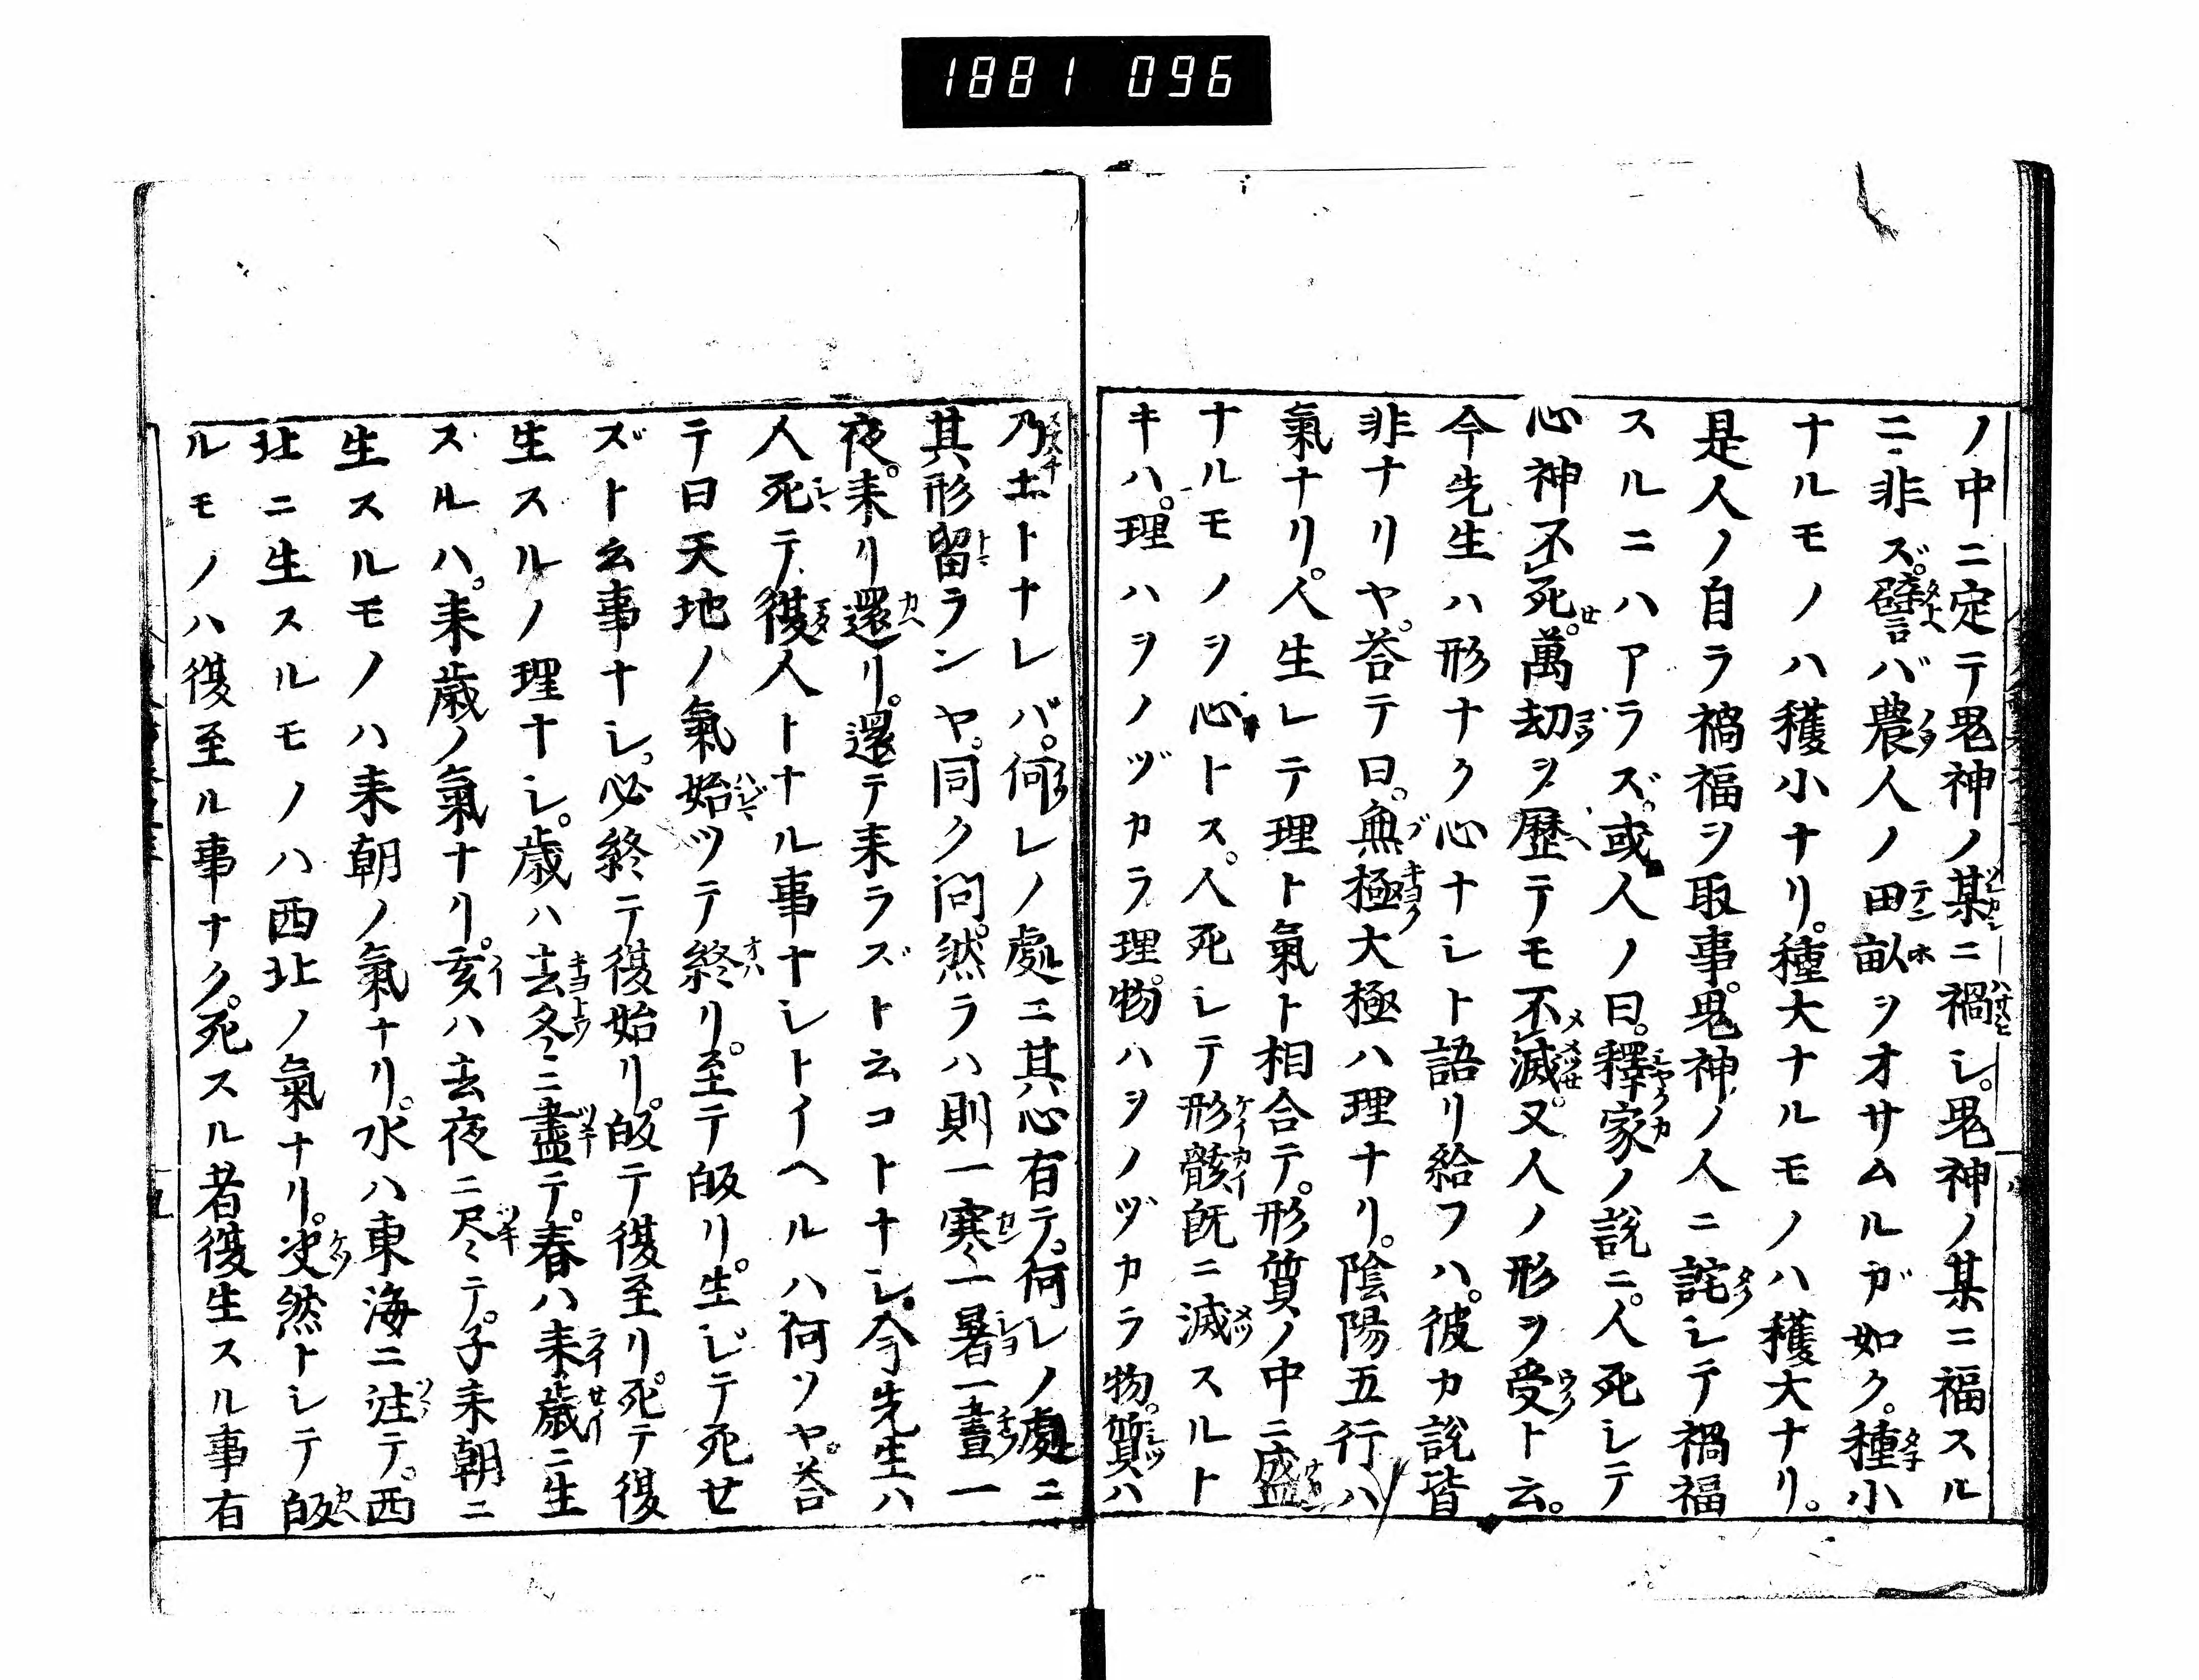 1881 096
ノ中ニ定テ鬼神ノ某ニ禍シ。鬼神ノ某ニ福スル
ニ非ズ。譬バ農人ノ田畝ヲオサムルガ如ク。種小
ナルモノハ穫小ナリ。種大ナルモノハ穫大ナリ。
是人ノ自ラ禍福ヲ取事。鬼神ノ人ニ詫シテ禍福
スルニハアラズ。或人ノ曰。釋家ノ説ニ。人死シテ
心神不死。萬劫ヲ歴テモ不滅。又人ノ形ヲ受ト云。
今先生ハ形ナク心ナシト語リ給フハ。彼カ説皆
非ナリヤ。荅テ曰。無極大極ハ理ナリ。陰陽五行ハ
氣ナリ。人生レテ理ト氣ト相合テ。形質ノ中ニ盛
ナルモノヲ心トス。人死シテ形骸既ニ滅スルト
キハ。理ハヲノヅカラ理。物ハヲノヅカラ物。質ハ
乃土トナレバ。何レノ處ニ其心有テ。何レノ處ニ
其形留ランヤ。同ク問。然ラハ則一寒一暑一晝一
夜。来リ還リ。還テ来ラズト云コトナシ。今先生ハ
人死テ復人トナル事ナシトイヘルハ何ソヤ。荅
テ曰天地ノ氣始ツテ終リ。至テ皈リ。生ジテ死セ
ズト云事ナシ。必終テ復始リ。皈テ復至リ。死テ復
生スルノ理ナシ。歳ハ去冬ニ盡テ。春ハ来歳ニ生
スルハ。来歳ノ氣ナリ。亥ハ去夜ニ尽テ。子来朝ニ
生スルモノハ来朝ノ氣ナリ。水ハ東海ニ注テ。西
北ニ生スルモノハ西北ノ氣ナリ。决然トシテ皈
ルモノハ復至ル事ナク。死スル者復生スル事有